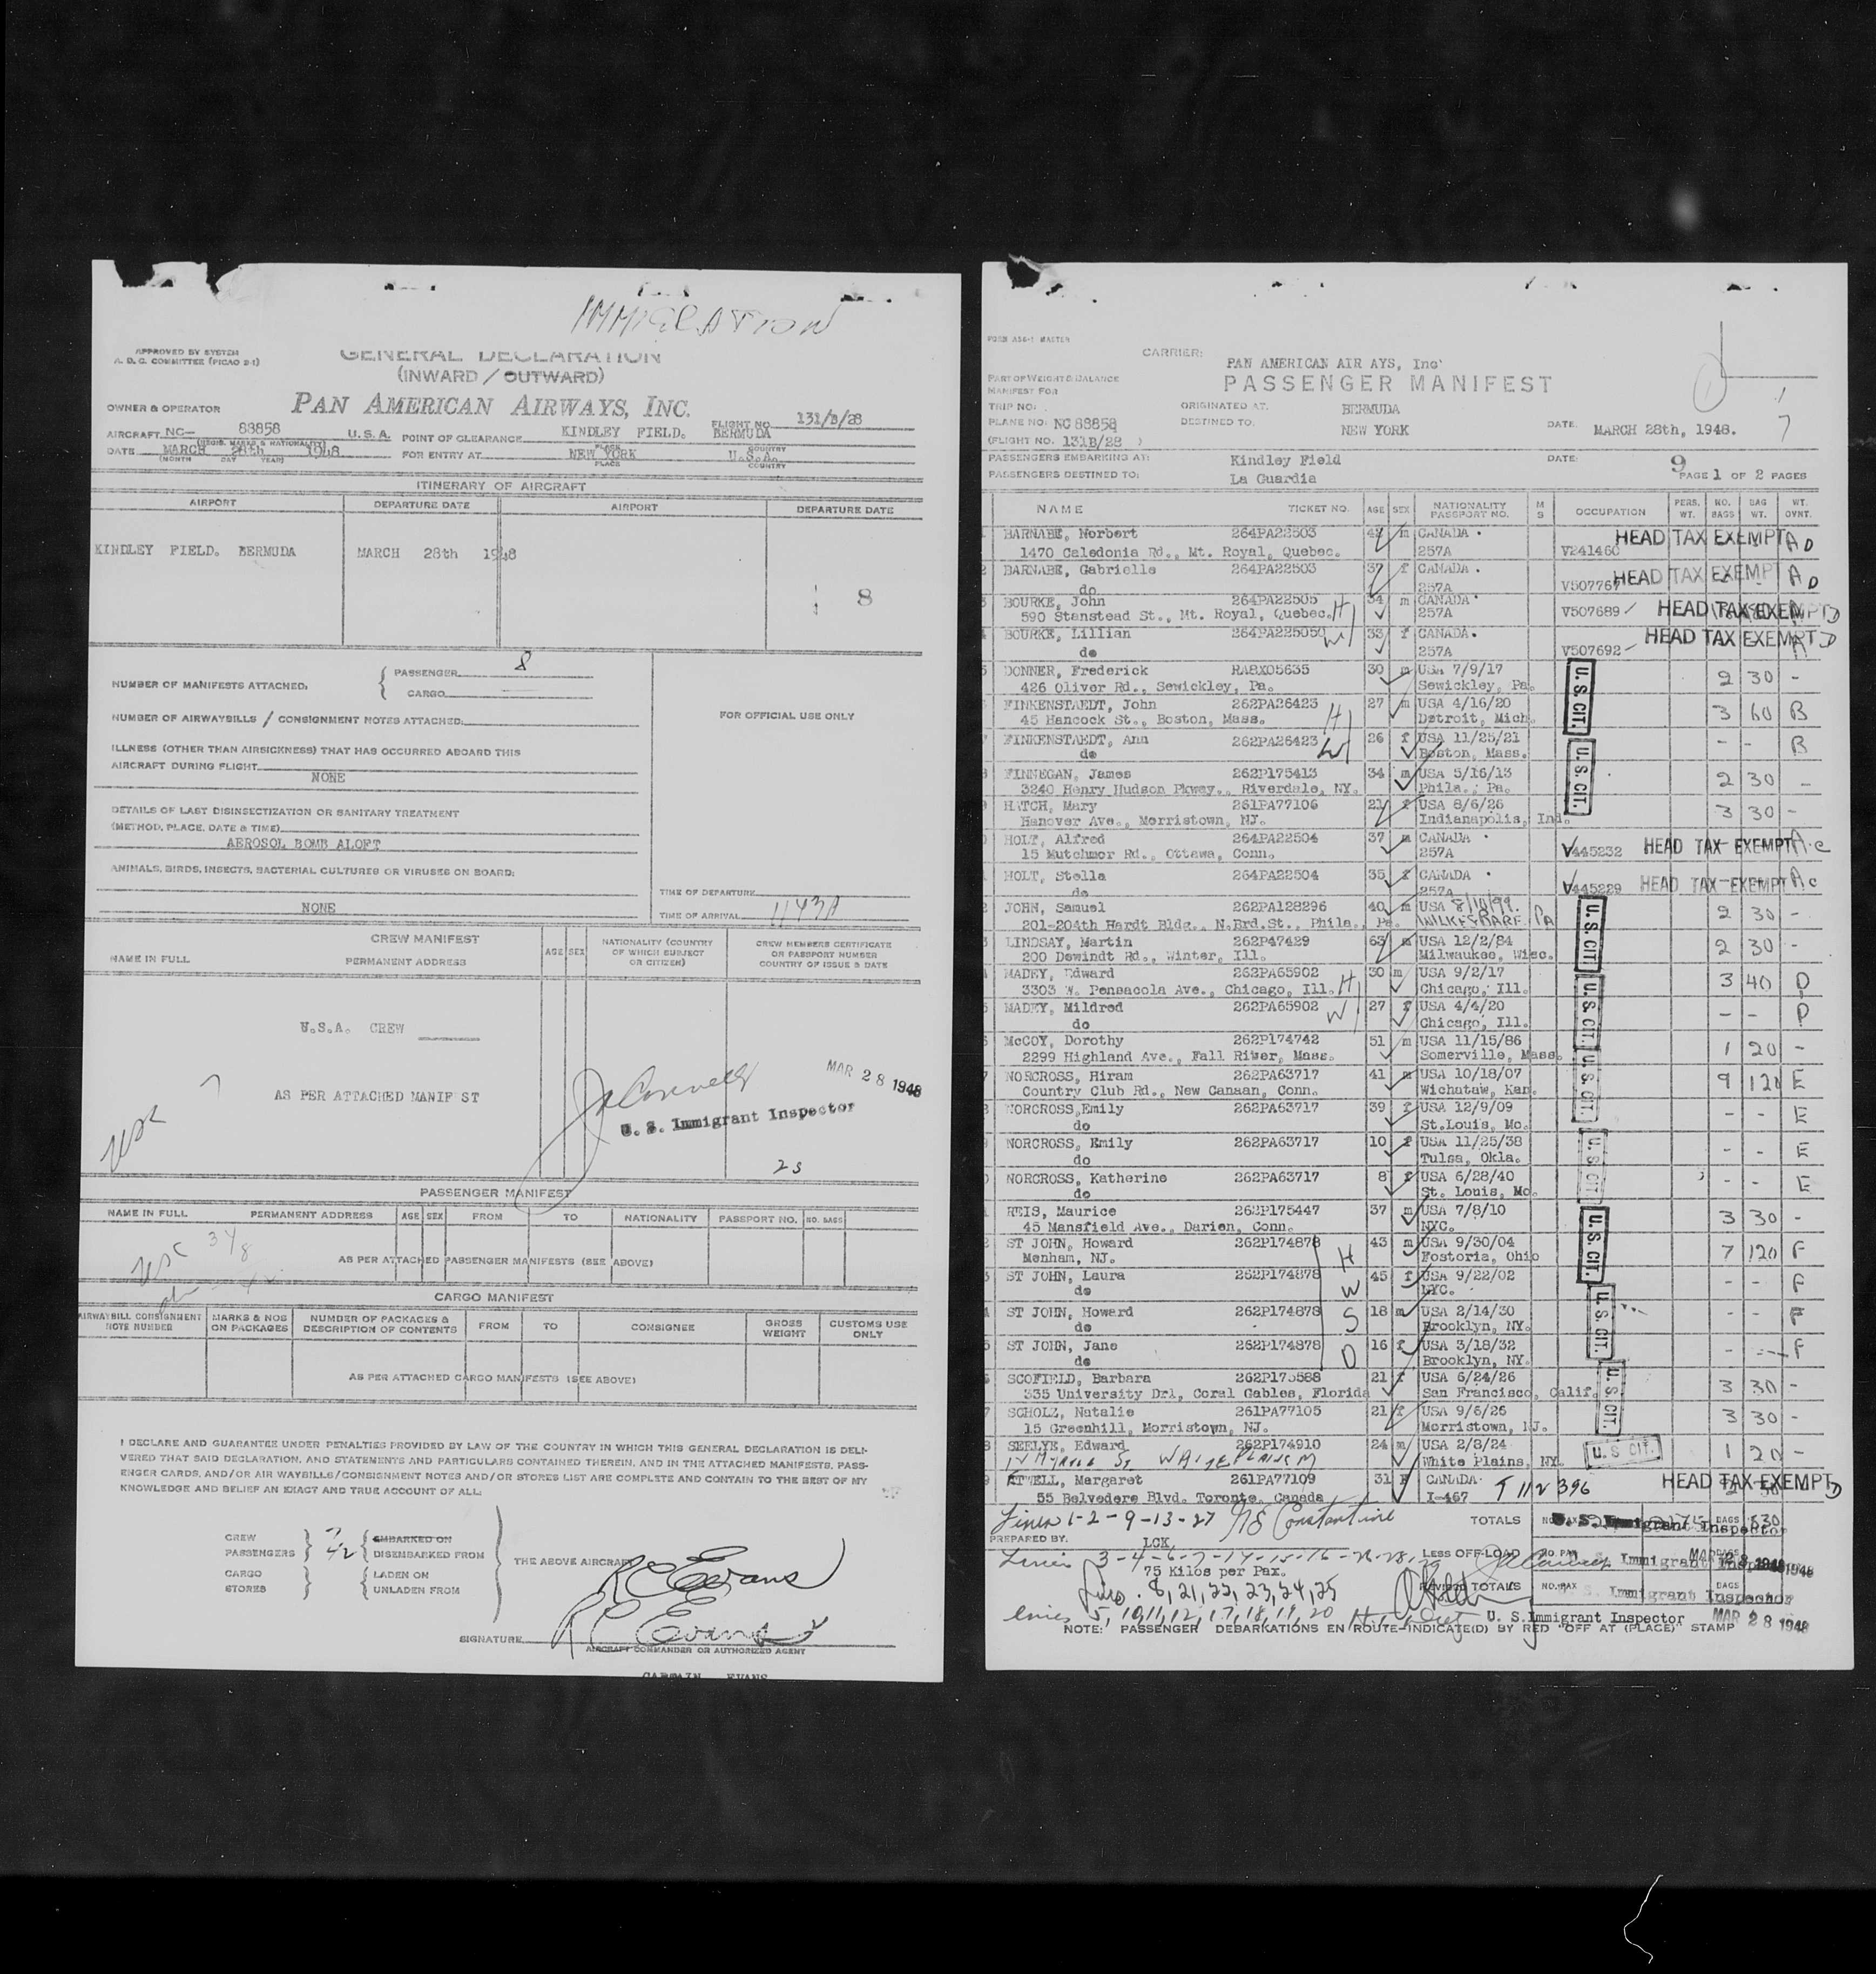 IMMIGRATION
APPROVED BY SYSTEM
A. D. C. COMMITTEE (PICAO 2-1)
GENERAL DECLARATION
(INWARD / OUTWARD)
OWNER & OPERATOR
PAN AMERICAN AIRWAYS, INC.
FLIGHT NO. 131/B/28
AIRCRAFT NC- 88858 U.S.A. POINT OF CLEARANCE KINDLEY FIELD. BERMUDA
(REGIS. MARKS & NATIONALITY) PLACE COUNTRY
DATE MARCH 28th 1948 FOR ENTRY AT NEW YORK U.S.A.
(MONTH DAY YEAR) PLACE COUNTRY
ITINERARY OF AIRCRAFT
AIRPORT DEPARTURE DATE AIRPORT DEPARTURE DATE
KINDLEY FIELD. BERMUDA MARCH 28th 1948
8
NUMBER OF MANIFESTS ATTACHED: PASSENGER 8
CARGO
NUMBER OF AIRWAYBILLS / CONSIGNMENT NOTES ATTACHED:
FOR OFFICIAL USE ONLY
ILLNESS (OTHER THAN AIRSICKNESS) THAT HAS OCCURRED ABOARD THIS
AIRCRAFT DURING FLIGHT
NONE
DETAILS OF LAST DISINSECTIZATION OR SANITARY TREATMENT
(METHOD, PLACE, DATE & TIME)
AEROSOL BOMB ALOFT
ANIMALS, BIRDS, INSECTS, BACTERIAL CULTURES OR VIRUSES ON BOARD:
NONE
TIME OF DEPARTURE
TIME OF ARRIVAL 1143A
CREW MANIFEST
NAME IN FULL PERMANENT ADDRESS AGE SEX NATIONALITY (COUNTRY OF WHICH SUBJECT OR CITIZEN) CREW MEMBERS CERTIFICATE OR PASSPORT NUMBER COUNTRY OF ISSUE & DATE
U.S.A. CREW
AS PER ATTACHED MANIFEST
MAR 28 1948
U. S. Immigrant Inspector
23
USC
PASSENGER MANIFEST
NAME IN FULL PERMANENT ADDRESS AGE SEX FROM TO NATIONALITY PASSPORT NO. NO. BAGS
USC 34/8
AS PER ATTACHED PASSENGER MANIFESTS (SEE ABOVE)
CARGO MANIFEST
AIRWAYBILL CONSIGNMENT NOTE NUMBER MARKS & NOS ON PACKAGES NUMBER OF PACKAGES & DESCRIPTION OF CONTENTS FROM TO CONSIGNEE GROSS WEIGHT CUSTOMS USE ONLY
AS PER ATTACHED CARGO MANIFESTS (SEE ABOVE)
I DECLARE AND GUARANTEE UNDER PENALTIES PROVIDED BY LAW OF THE COUNTRY IN WHICH THIS GENERAL DECLARATION IS DELI-
VERED THAT SAID DECLARATION, AND STATEMENTS AND PARTICULARS CONTAINED THEREIN, AND IN THE ATTACHED MANIFESTS, PASS-
ENGER CARDS, AND/OR AIR WAYBILLS/CONSIGNMENT NOTES AND/OR STORES LIST ARE COMPLETE AND CONTAIN TO THE BEST OF MY
KNOWLEDGE AND BELIEF AN EXACT AND TRUE ACCOUNT OF ALL:
CREW 7 EMBARKED ON
PASSENGERS 42 DISEMBARKED FROM
CARGO LADEN ON
STORES UNLADEN FROM
THE ABOVE AIRCRAFT
R C Evans
SIGNATURE R C Evans
AIRCRAFT COMMANDER OR AUTHORIZED AGENT
CAPTAIN EVANS
FORM AS6-1 MASTER
CARRIER: PAN AMERICAN AIR AYS, Inc'
PASSENGER MANIFEST
PART OF WEIGHT & BALANCE
MANIFEST FOR
TRIP NO: ORIGINATED AT: BERMUDA
PLANE NO: NC 88858 DESTINED TO: NEW YORK DATE: MARCH 28th, 1948.
(FLIGHT NO. 131B/28 )
PASSENGERS EMBARKING AT: Kindley Field DATE: 9
PASSENGERS DESTINED TO: La Guardia PAGE 1 OF 2 PAGES
NAME TICKET NO. AGE SEX NATIONALITY PASSPORT NO. M S OCCUPATION PERS. WT. NO. BAGS BAG WT. WT. OVNT.
BARNABE, Norbert 264PA22503 42 m CANADA HEAD TAX EXEMPT A D
1470 Caledonia Rd., Mt. Royal, Quebec. 257A V241460
2 BARNABE, Gabrielle 264PA22503 37 f CANADA HEAD TAX EXEMPT A D
do 257A V507767
BOURKE, John 264PA22505 34 m CANADA
590 Stanstead St., Mt. Royal, Quebec. H 257A V507689 HEAD TAX EXEMPT D
BOURKE, Lillian 264PA225050 W 33 f CANADA. HEAD TAX EXEMPT D
do 257A V507692
DONNER, Frederick RABX05635 30 m USA 7/9/17 2 30 -
426 Oliver Rd., Sewickley, Pa. Sewickley, Pa. U.S. CIT.
FINKENSTAEDT, John 262PA26423 H 27 m USA 4/16/20 3 60 B
45 Hancock St., Boston, Mass. Detroit, Mich.
FINKENSTAEDT, Ann 262PA26423 W 26 f USA 11/25/21 - - B
do Boston, Mass. U.S. CIT.
FINNEGAN, James 262P175413 34 m USA 5/16/13 2 30 -
3240 Henry Hudson Pkway., Riverdale, NY. Phila., Pa.
HATCH, Mary 261PA77106 21 f USA 8/6/26 3 30 -
Hanover Ave., Morristown, NJ. Indianapolis, Ind.
HOLT, Alfred 264PA22504 37 m CANADA
15 Mutchmor Rd., Ottawa, Conn. 257A V445232 HEAD TAX EXEMPT A c
HOLT, Stella 264PA22504 35 f CANADA
do 257A V445229 HEAD TAX EXEMPT A c
JOHN, Samuel 262PA128296 40 m USA 8/10/99. 2 30 -
201-204th Hardt Bldg., N.Brd.St., Phila., Pa. WILKESBARE PA U.S. CIT.
LINDSAY, Martin 262P47429 63 m USA 12/2/84 2 30 -
200 Dewindt Rd., Winter, Ill. Milwaukee, Wisc.
MADEY, Edward 262PA65902 30 m USA 9/2/17 3 40 D
3303 W. Pensacola Ave., Chicago, Ill. H Chicago, Ill.
MADEY, Mildred 262PA65902 W 27 f USA 4/4/20 - - D
do Chicago, Ill. U.S. CIT.
McCOY, Dorothy 262P174742 51 m USA 11/15/86 1 20 -
2299 Highland Ave., Fall River, Mass. Somerville, Mass.
NORCROSS, Hiram 262PA63717 41 m USA 10/18/07 9 120 E
Country Club Rd., New Canaan, Conn. Wichataw, Kan. U.S. CIT.
NORCROSS,Emily 262PA63717 39 f USA 12/9/09 - - E
do St.Louis, Mo.
NORCROSS, Emily 262PA63717 10 f USA 11/25/38 - - E
do Tulsa, Okla. U.S. CIT.
NORCROSS, Katherine 262PA63717 8 f USA 6/28/40 - - E
do St. Louis, Mo.
REIS, Maurice 262P175447 37 m USA 7/8/10 3 30 -
45 Mansfield Ave., Darien, Conn. NYC. U.S. CIT.
ST JOHN, Howard 262P174878 H 43 m USA 9/30/04 7 120 F
Menham, NJ. Fostoria, Ohio
ST JOHN, Laura 262P174878 W 45 f USA 9/22/02 - - F
do NYC.
ST JOHN, Howard 262P174878 S 18 m USA 2/14/30 - - F
do Brooklyn, NY. U.S. CIT.
ST JOHN, Jane 262P174878 D 16 f USA 3/18/32 - - F
do Brooklyn, NY.
SCOFIELD, Barbara 262P175588 21 f USA 6/24/26 3 30 -
335 University Drl, Coral Gables, Florida San Francisco, Calif. U.S. CIT.
SCHOLZ, Natalie 261PA77105 21 f USA 9/6/26 3 30 -
15 Greenhill, Morristown, NJ. Morristown, NJ.
SEELYE, Edward 262P174910 24 m USA 2/8/24 U.S CIT. 1 20 -
MYRTLE ST WHITE PLAINS NY White Plains, NY
ATWELL, Margaret 261PA77109 31 F CANADA T 112396 HEAD TAX EXEMPT D
55 Belvedere Blvd. Toronto, Canada I-467
Lines 1-2-9-13-27 NE Constantine TOTALS NO. PAX BAGS 830 U. S. Immigrant Inspector
PREPARED BY: LCK
Lines 3-4-6-7-14-15-16-26-28-29 LESS OFF-LOAD NO. PAX BAGS Immigrant Inspector MAR 28 1948
75 Kilos per Pax.
Lines 8, 21, 22, 23, 24, 25 REVISED TOTALS NO. PAX BAGS Immigrant Inspector
Lines 5, 10, 11, 12, 17, 18, 19, 20 U. S. Immigrant Inspector MAR 28 1948
NOTE: PASSENGER DEBARKATIONS EN ROUTE-INDICATE(D) BY RED "OFF AT (PLACE)" STAMP